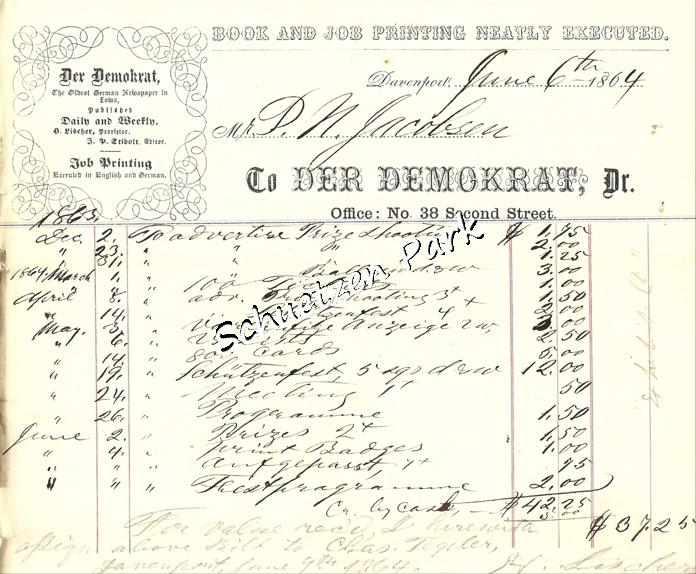 BOOK AND JOB PRINTING NEATLY EXECUTED.
Der Demokrat,
The Oldest German Newspaper in
Iowa,
Published
Daily and Weekly.
H. Lischer, Proprietor.
J. P. Stibolt, Editor.
Job Printing
Executed in English and German.
Davenport, June 6th 1864
Mr. P. N. Jacobsen
To DER DEMOKRAT, Dr.
Office: No. 38 Second Street.
1863.
Dec. 2. To advertise Prize shooting $ 1.75
" 23. " " 2.00
" 31. " 1.25
1864 March 1. " 3.00
" " " 100 1.00
April 8. " adv. shooting 3t 1.50
" 14. " 4
May. 3. " Anzeige
" 6. " 2.50
" 14. " Cards 5.00
" 19. " Schützenfest, 5 sqs d & w 12.00
" 24. " Meeting 1t 50
" 26. " Programme 1.50
June 2. " Prizes 2t 1.50
" 4. " print Badges 1.00
" " " Aufgepasst, 75
" " " Festprogramme 2.00
Cr. by cash, $42.25
5.00
$37.25
For value recd, I herewith
assign above bill to Chas. Tegeler,
Davenport, June 9th 1864.
H. Lischer
Schuetzen Park